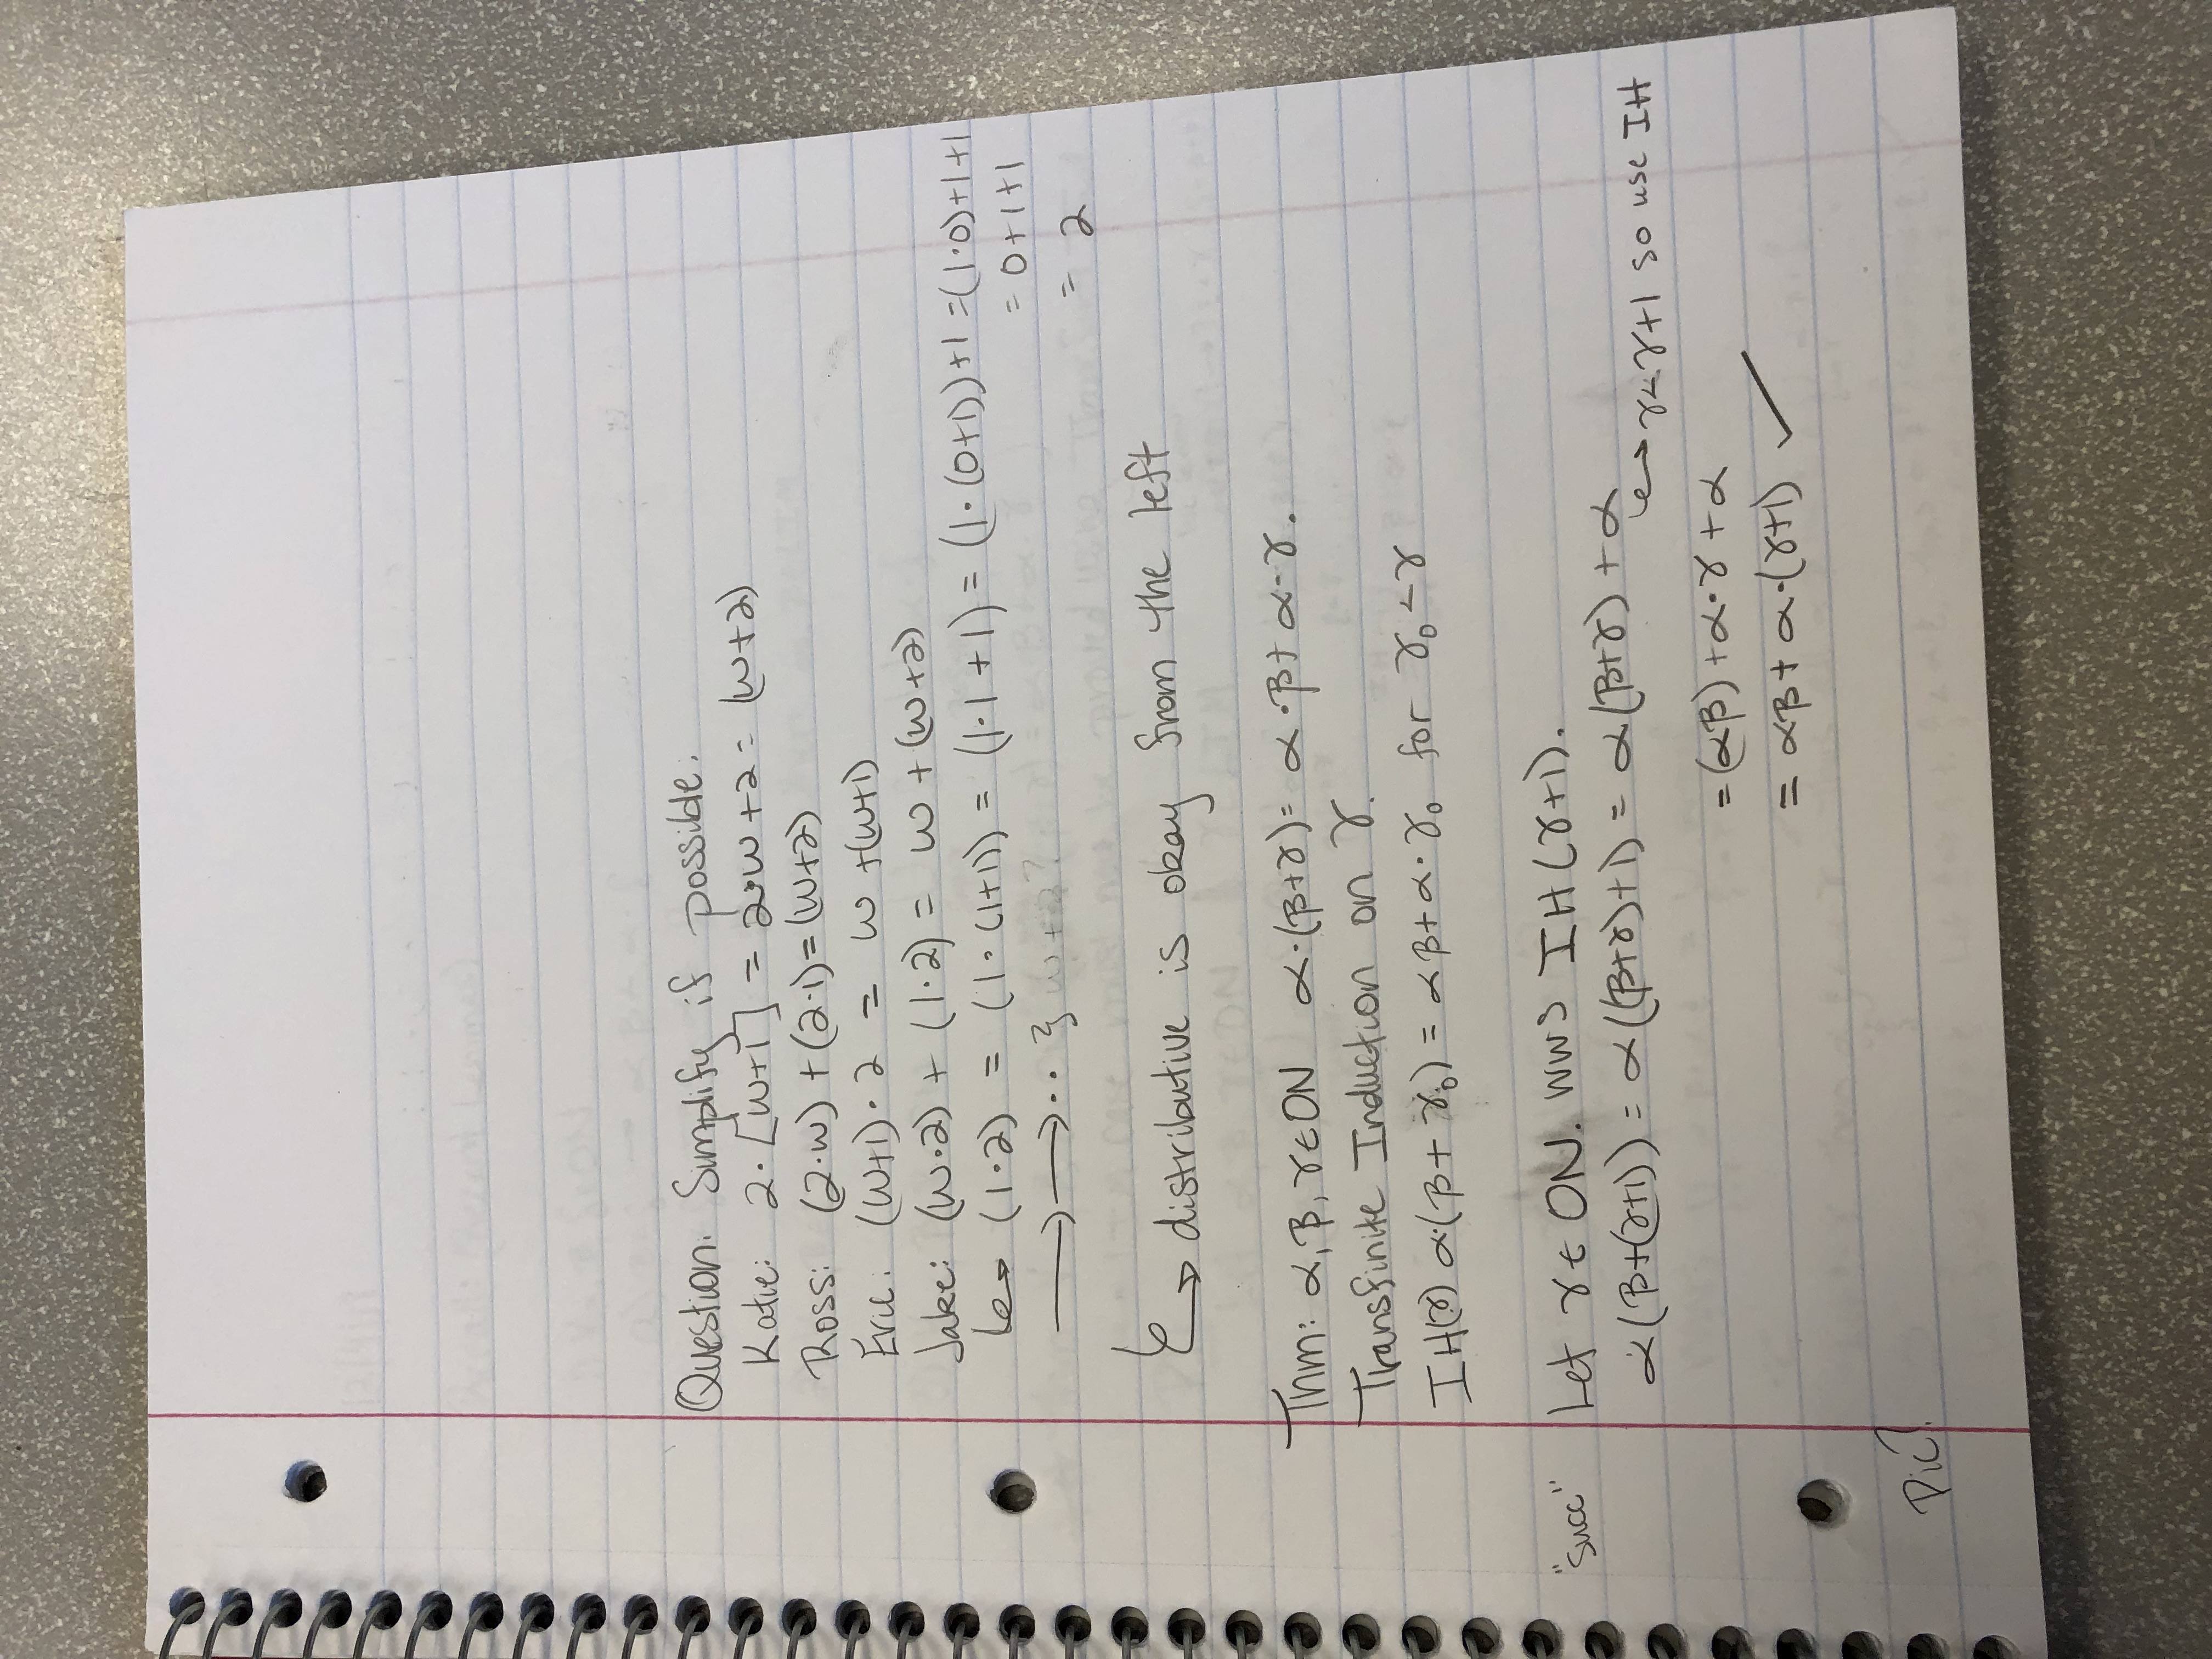 Question. Simplify if possible.
Katie: 2·[ω+1] = 2·ω+2 = (ω+2)
Ross: (2·ω) + (2·1) = (ω+2)
Eric: (ω+1)·2 = ω+(ω+1)
Jake: (ω·2) + (1·2) = ω + (ω+2)
↳ (1·2) = (1·(1+1)) = (1·1+1) = (1·(0+1))+1 = (1·0)+1+1
= 0+1+1
⟶⟶·· } ω+2?
= 2
↳ distributive is okay from the left
Thm: α, β, γ∈ON α·(β+γ) = α·β + α·γ.
Transfinite Induction on γ.
IH(γ) α·(β+γ₀) = αβ+α·γ₀ for γ₀<γ
"succ" Let γ∈ON. WWS IH(γ+1).
α(β+(γ+1)) = α((β+γ)+1) = α(β+γ) + α
↳ γ<γ+1 so use IH
= (αβ) + α·γ + α
= αβ + α·(γ+1) ✓
Pic?